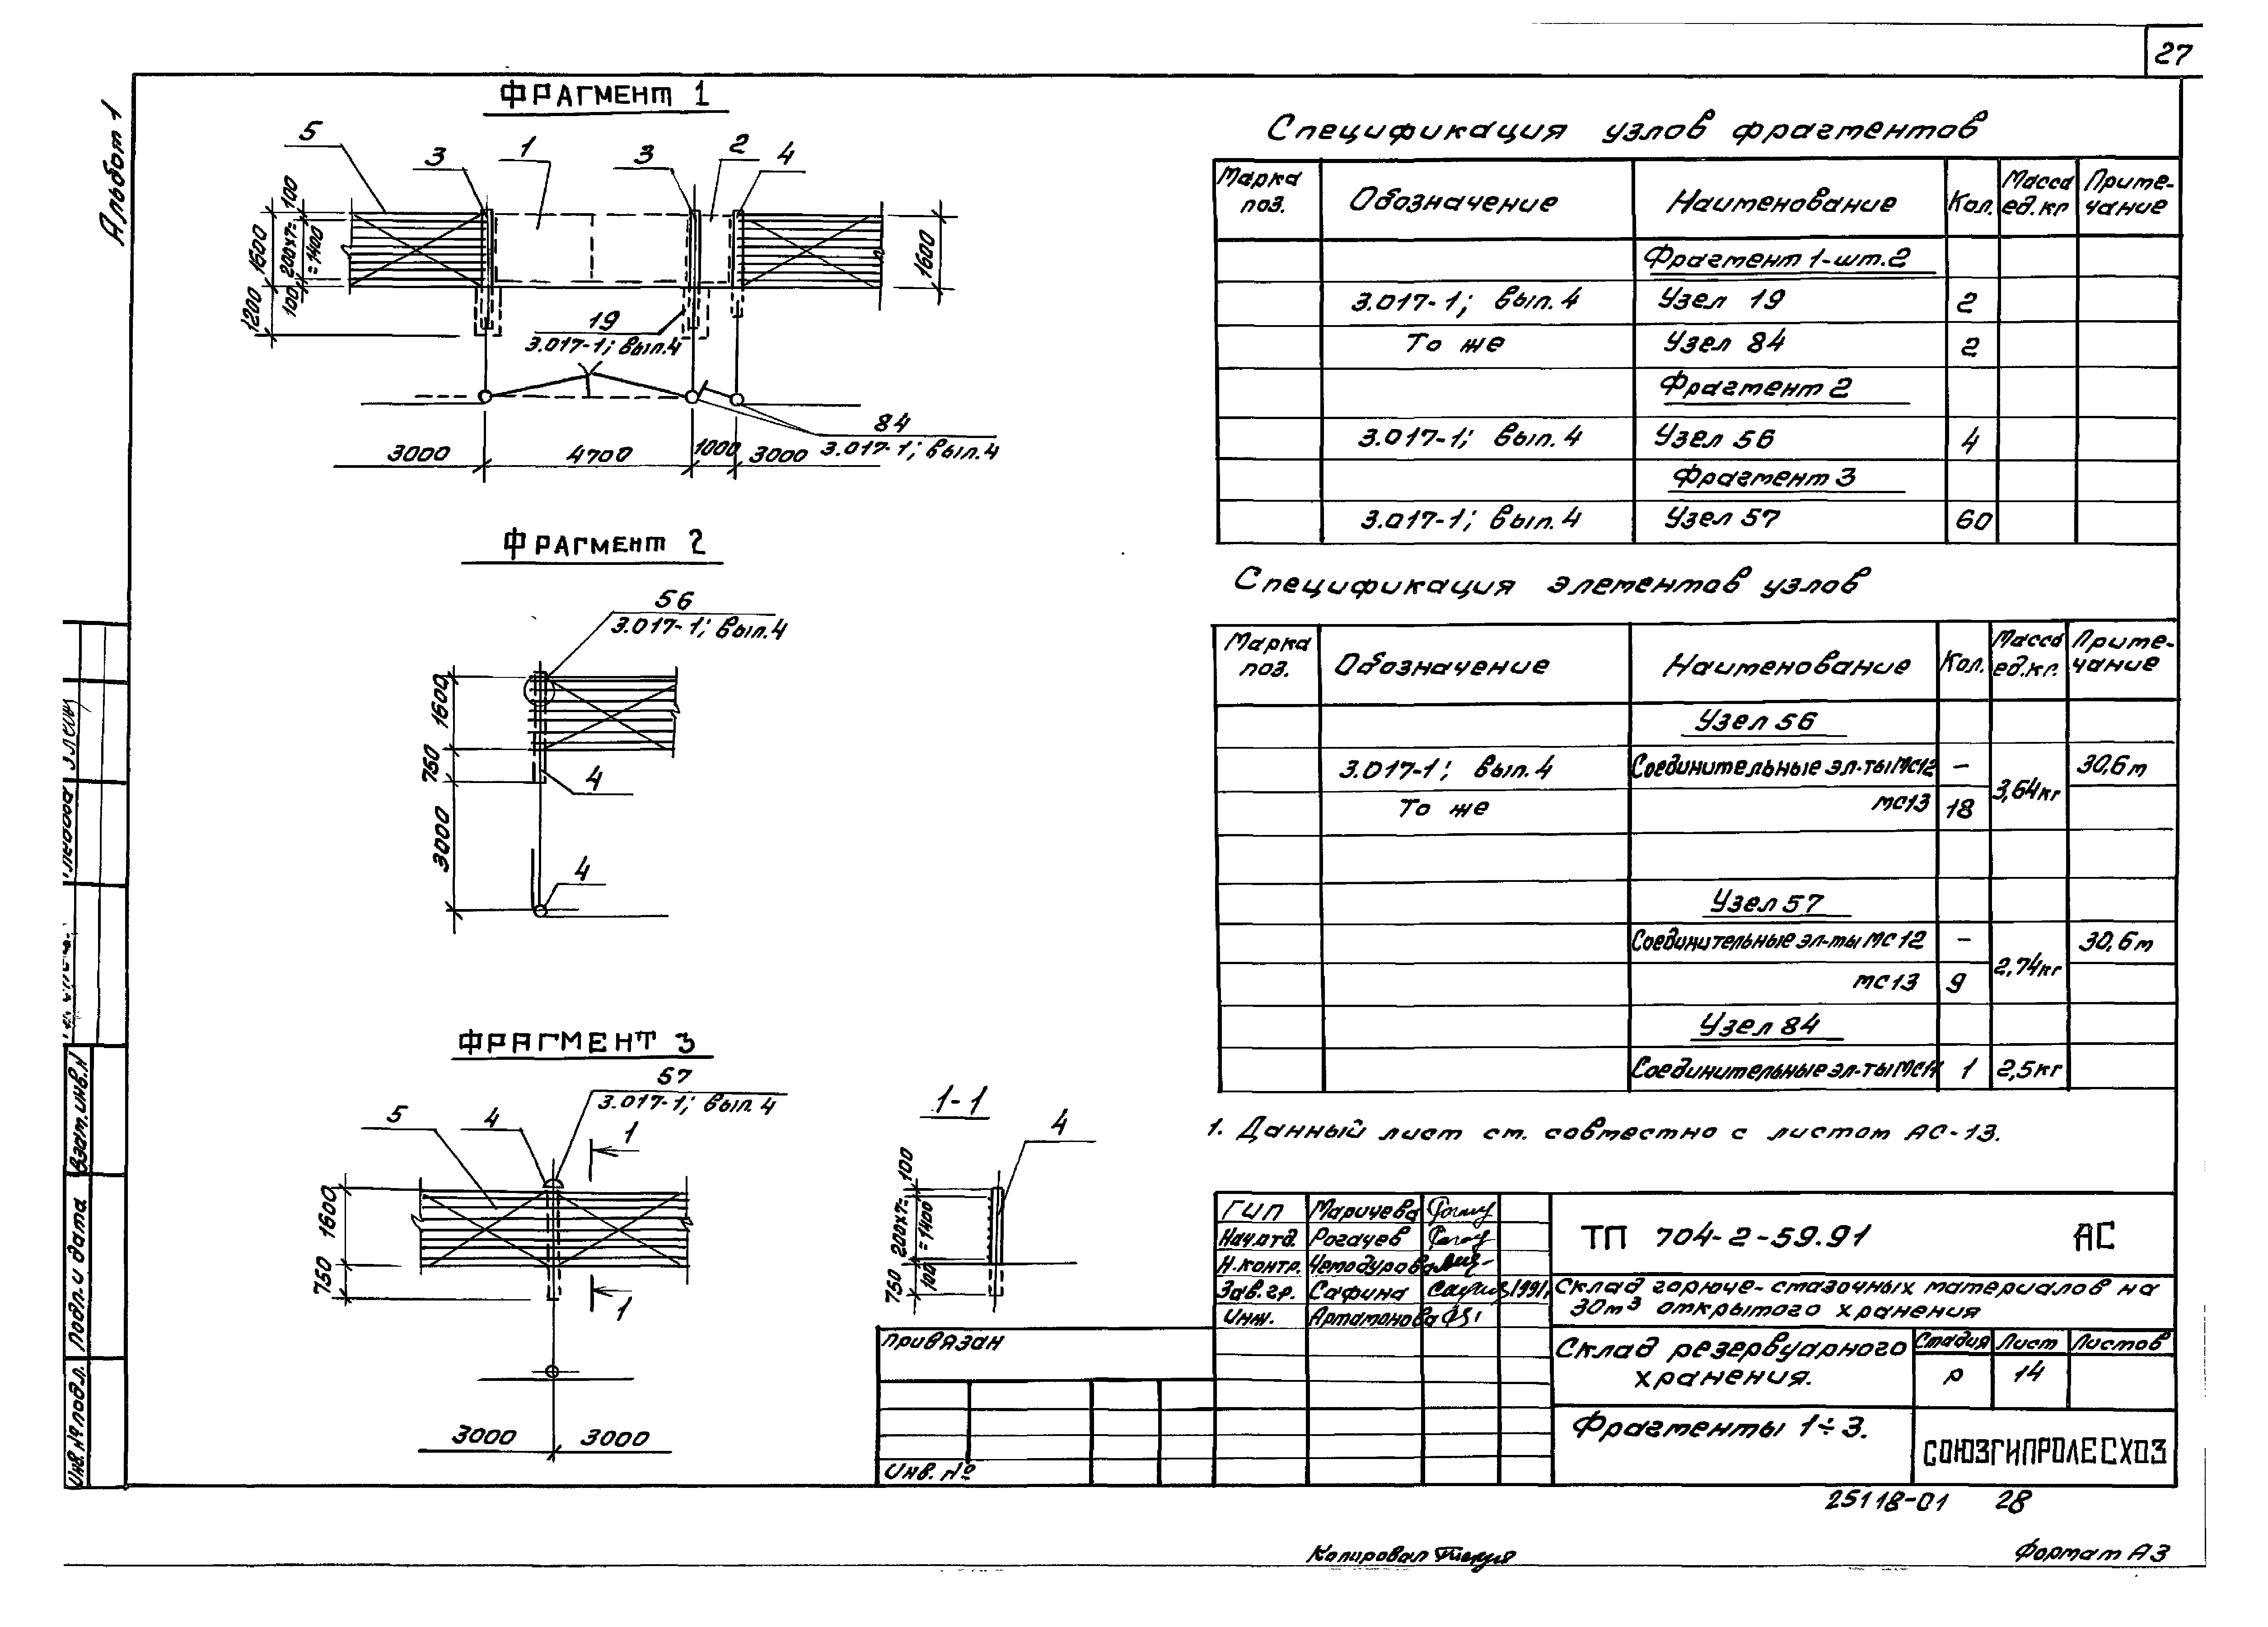 27
Альбом 1
ФРАГМЕНТ 1
5
3
1
3
2
4
100
1600
200х7=
=1400
100
1200
1600
19
3.017-1; вып.4
84
3.017-1; вып.4
3000
4700
1000
3000
ФРАГМЕНТ 2
56
3.017-1; вып.4
1600
750
3000
4
4
ФРАГМЕНТ 3
57
3.017-1; вып. 4
5
4
1
1
1600
750
3000
3000
1-1
4
100
200х7=
=1400
100
750
Спецификация узлов фрагментов
Марка поз.
Обозначение
Наименование
Кол.
Масса ед.кг
Приме-чание
Фрагмент 1-шт.2
3.017-1; вып. 4 Узел 19 2
То же Узел 84 2
Фрагмент 2
3.017-1; вып. 4 Узел 56 4
Фрагмент 3
3.017-1; вып. 4 Узел 57 60
Спецификация элементов узлов
Марка поз.
Обозначение
Наименование
Кол.
Масса ед.кг.
Приме-чание
Узел 56
3.017-1; вып. 4 Соединительные эл-ты МС12 – 30,6м
3,64кг
То же МС13 18
Узел 57
Соединительные эл-ты МС 12 – 30,6м
2,74кг
МС13 9
Узел 84
Соединительные эл-ты 1 2,5кг
1. Данный лист см. совместно с листом АС-13.
ГИП Маричева
Нач.отд. Рогачев
Н.контр. Чемодурова
Зав.гр. Сафина 1991г
Инж. Артамонова
ТП 704-2-59.91 АС
Склад горюче-смазочных материалов на
30м³ открытого хранения
Склад резервуарного
хранения.
Стадия Лист Листов
Р 14
Фрагменты 1÷3.
СОЮЗГИПРОЛЕСХОЗ
Привязан
Инв. №
Взам.инв.н
Подп. и дата
Инв.№подл.
25118-01 28
Копировал
Формат А3